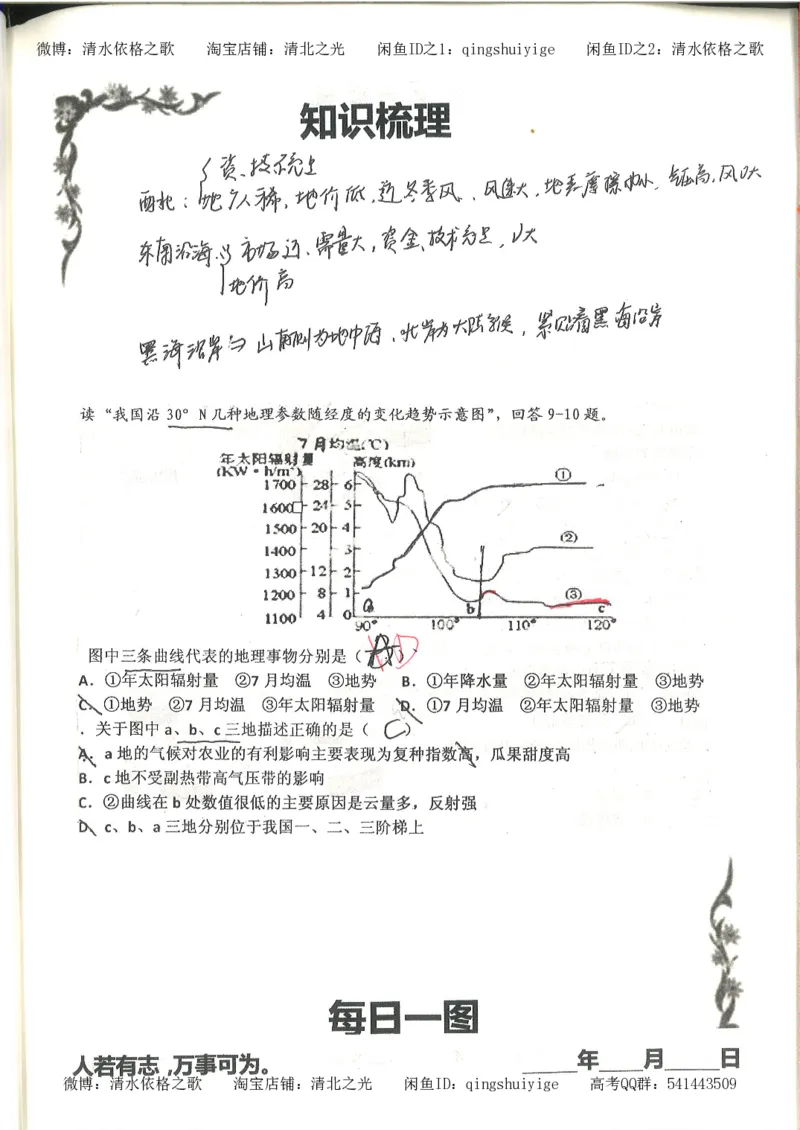 微博：清水依格之歌 淘宝店铺：清北之光 闲鱼ID之1：qingshuiyige 闲鱼ID之2：清水依格之歌
知识梳理
西北：地广人稀，地价低，近冬季风，风速大，地表摩擦力小
东南沿海 市场近、需量大，资金、技术充足
地价高
黑海沿岸
读“我国沿 30° N 几种地理参数随经度的变化趋势示意图”，回答 9-10 题。
7月均温(℃)
年太阳辐射量 高度(km)
(KW·h/m²)
1700 28 6 ①
1600 24 5
1500 20 4 ②
1400 3
1300 12 2
1200 8 1 a b ③ c
1100 4 0
90° 100° 110° 120°
图中三条曲线代表的地理事物分别是（ D ）
A．①年太阳辐射量 ②7 月均温 ③地势 B．①年降水量 ②年太阳辐射量 ③地势
C．①地势 ②7 月均温 ③年太阳辐射量 D．①7 月均温 ②年太阳辐射量 ③地势
．关于图中 a、b、c 三地描述正确的是（ C ）
A．a 地的气候对农业的有利影响主要表现为复种指数高，瓜果甜度高
B．c 地不受副热带高气压带的影响
C．②曲线在 b 处数值很低的主要原因是云量多，反射强
D．c、b、a 三地分别位于我国一、二、三阶梯上
每日一图
人若有志，万事可为。 ____年____月____日
微博：清水依格之歌 淘宝店铺：清北之光 闲鱼ID：qingshuiyige 高考QQ群：541443509